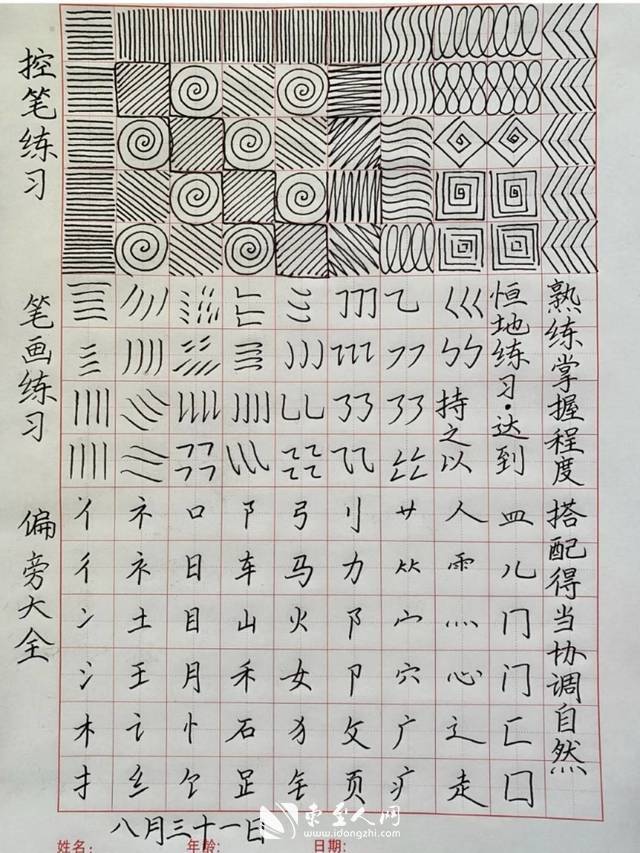 控笔练习
笔画练习
偏旁大全
持之以
恒地练习·达到
熟练掌握程度
搭配得当协调自然
丬 礻 口 阝 弓 刂 艹 人 皿
彳 衤 日 车 马 力 ⺮ 雨 儿
冫 土 目 山 火 阝 宀 灬 冂
氵 王 月 禾 女 卩 穴 心 门
木 讠 忄 石 犭 攵 广 辶 匚
扌 纟 饣 𧾷 钅 页 疒 走 囗
八月三十一日
姓名: 年龄: 日期:
东至人网
www.idongzhi.com